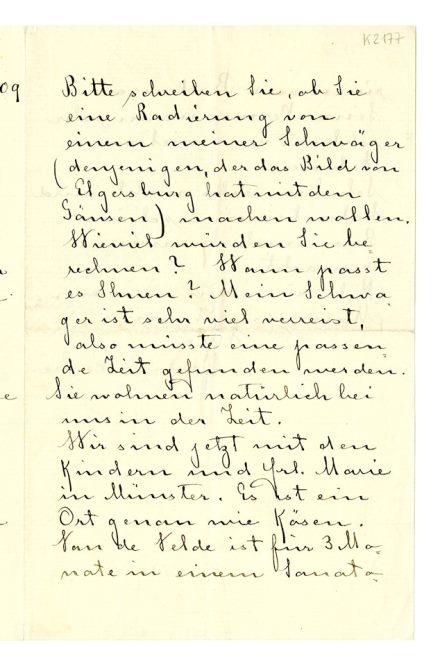 K2177
09
Bitte schreiben Sie, ob Sie
eine Radierung von
einem meiner Schwäger
(denjenigen, der das Bild von
Elgersburg hat mit den
Gänsen) machen wollen.
Wieviel würden Sie be-
rechnen? Wann passt
es Ihnen? Mein Schwa-
ger ist sehr viel verreist,
also müsste eine passen-
de Zeit gefunden werden.
Sie wohnen natürlich bei
uns in der Zeit.
Wir sind jetzt mit den
Kindern und Frl. Marie
in Münster. Es ist ein
Ort genau wie Kösen.
Van de Velde ist für 3 Mo-
nate in einem Sanato-